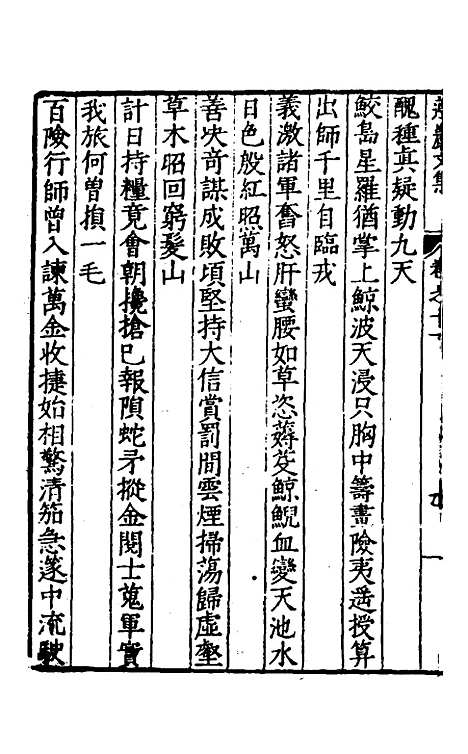 醜種真疑動九天
鮫島星羅猶掌上鯨波天浸只胸中籌畫險夷遥授算
出師千里自臨戎
義激諸軍奮怒肝蠻腰如草恣薅芟鯨鯢血變天池水
日色殷紅照萬山
善央奇謀成敗頃堅持大信賞罰間雲煙掃蕩歸虛壑
草木昭回窮髮山
計日持糧竟會朝攙搶已報隕蛇矛摐金閱士蒐軍實
我旅何曾損一毛
百險行師曾入諫萬金收捷始相驚清笳急邃中流駛